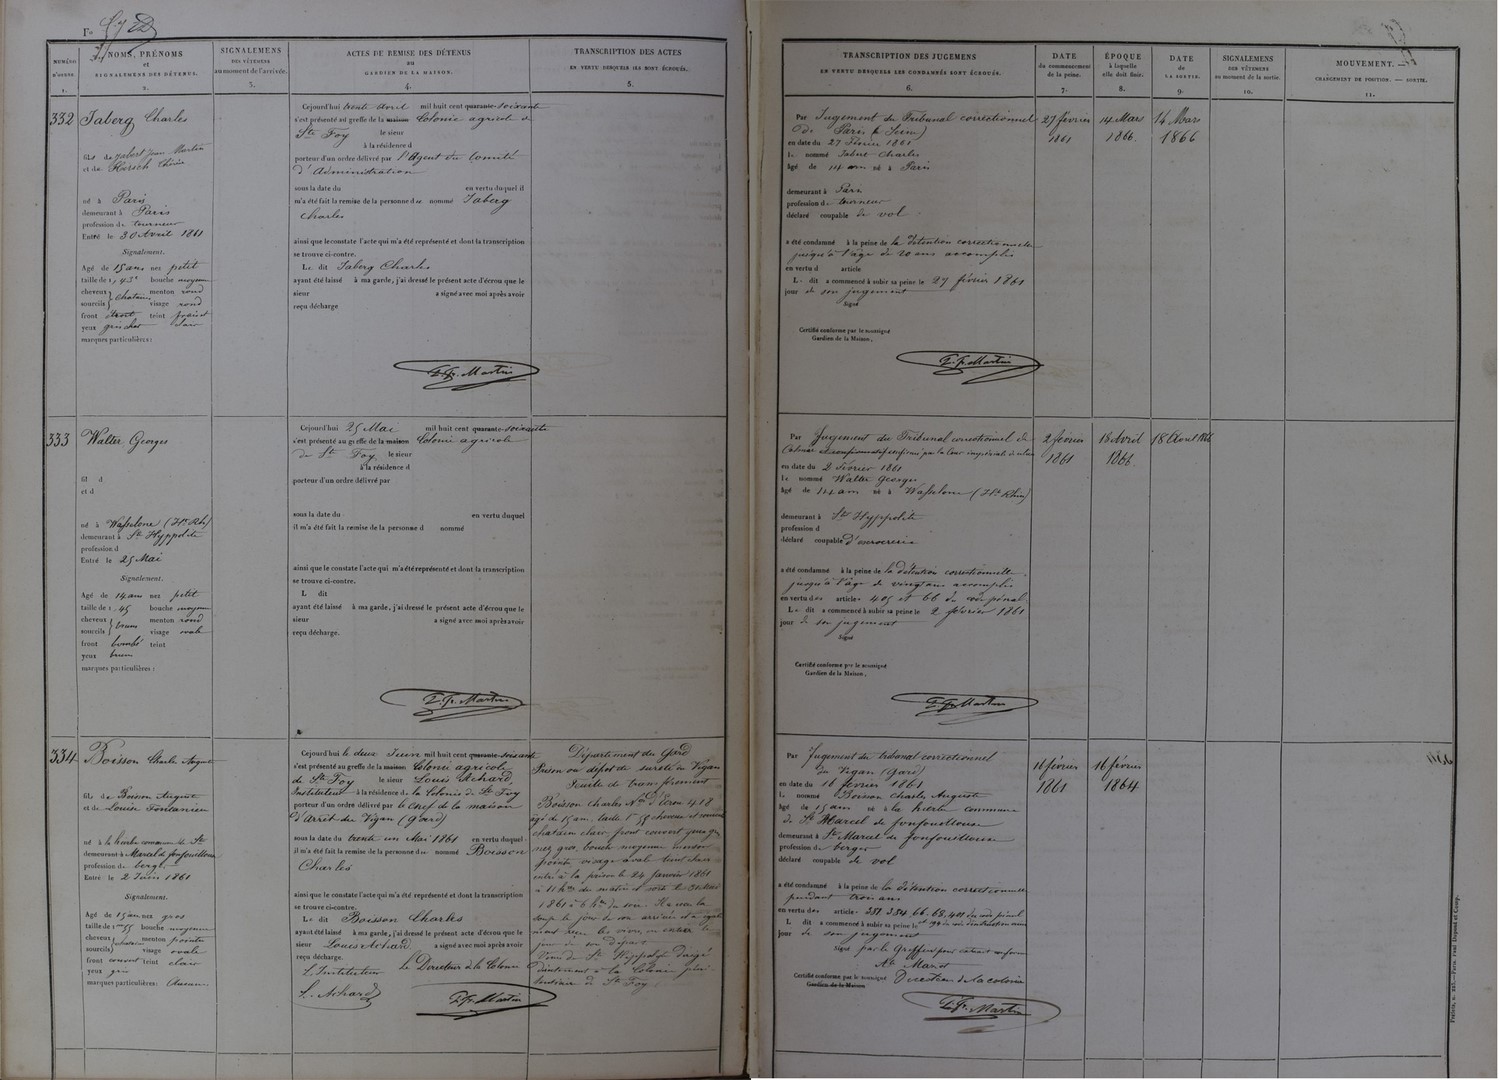 NUMÉRO
D'ORDRE
1.
NOMS, PRÉNOMS
et
SIGNALEMENS DES DÉTENUS.
2.
SIGNALEMENS
DES VÊTEMENS
au moment de l'arrivée.
3.
ACTES DE REMISE DES DÉTENUS
au
GARDIEN DE LA MAISON.
4.
TRANSCRIPTION DES ACTES
EN VERTU DESQUELS ILS SONT ÉCROUÉS.
5.
TRANSCRIPTION DES JUGEMENS
EN VERTU DESQUELS LES CONDAMNÉS SONT ÉCROUÉS.
6.
DATE
du commencement
de la peine.
7.
ÉPOQUE
à laquelle
elle doit finir.
8.
DATE
de
LA SORTIE.
9.
SIGNALEMENS
DES VÊTEMENS
au moment de la sortie.
10.
MOUVEMENT. —
CHANGEMENT DE POSITION. — SORTIE.
11.
332
Jaberg Charles
né à Paris
demeurant à Paris
profession de tourneur
Entré le 30 Avril 1861
Signalement.
Agé de 15 ans nez petit
taille de 1, 43 bouche moyenne
cheveux menton rond
sourcils chatains visage rond
front étroit teint
yeux gris clair
marques particulières :
Cejourd'hui trente avril mil huit cent quarante-soixante
s'est présenté au greffe de la maison Colonie agricole de
Ste Foy le sieur
à la résidence d
porteur d'un ordre délivré par l'Agent du Comité
d'Administration
sous la date du en vertu duquel il
m'a été fait la remise de la personne des nommé Jaberg
Charles
ainsi que le constate l'acte qui m'a été représenté et dont la transcription
se trouve ci-contre.
Le dit Jaberg Charles
ayant été laissé à ma garde, j'ai dressé le présent acte d'écrou que le
sieur a signé avec moi après avoir
reçu décharge
Par Jugement du Tribunal correctionnel
de Paris (Seine)
en date du 27 Février 1861
le nommé Charles
âgé de 14 ans né à Paris
demeurant à Paris
profession de tourneur
déclaré coupable de vol
a été condamné à la peine de la détention correctionnelle
jusqu'à l'âge de 20 ans accomplis
en vertu d article
Le dit a commencé à subir sa peine le 27 février 1861
jour de son jugement
Signé
Certifié conforme par le soussigné
Gardien de la Maison.
27 février
1861
14 Mars
1866.
14 Mars
1866
333
Walter Georges
fil d
et d
né à Wasselone (Ht Rh)
demeurant à St Hyppolite
profession d
Entré le 25 Mai
Signalement.
Agé de 14 ans nez petit
taille de 1, 45 bouche moyenne
cheveux menton rond
sourcils bruns visage ovale
front bombé teint
yeux bruns
marques particulières :
Cejourd'hui 25 Mai mil huit cent quarante-soixante
s'est présenté au greffe de la maison Colonie agricole
de Ste Foy le sieur
à la résidence d
porteur d'un ordre délivré par
sous la date du en vertu duquel
il m'a été fait la remise de la personne d nommé
ainsi que le constate l'acte qui m'a été représenté et dont la transcription
se trouve ci-contre.
L dit
ayant été laissé à ma garde, j'ai dressé le présent acte d'écrou que le
sieur a signé avec moi après avoir
reçu décharge.
Par Jugement du Tribunal correctionnel de
Colmar confirmé par la Cour impériale
en date du 2 Février 1861
le nommé Walter Georges
âgé de 14 ans né à Wasselone (Ht Rhin)
demeurant à St Hyppolite
profession d
déclaré coupable d'escroquerie
a été condamné à la peine de la détention correctionnelle
jusqu'à l'âge de vingt ans accomplis
en vertu des articles 405 et 66 du code pénal
Le dit a commencé à subir sa peine le 2 février 1861
jour de son jugement
Signé
Certifié conforme par le soussigné
Gardien de la Maison.
2 février
1861
18 Avril
1866
18 Avril 1866
334
Boisson Charles Auguste
fils de Boisson Auguste
et de Louise
né à la commune de St
demeurant à Marcel de fonfouillouse
profession de berger
Entré le 2 Juin 1861
Signalement.
Agé de 15 ans nez gros
taille de 1m 55 bouche moyenne
cheveux menton pointu
sourcils chatains visage ovale
front couvert teint clair
yeux gris
marques particulières : Aucune.
Cejourd'hui le deux Juin mil huit cent quarante-soixante
s'est présenté au greffe de la maison Colonie agricole
de Ste Foy le sieur Louis Achard,
Instituteur à la résidence de la Colonie de Ste Foy
porteur d'un ordre délivré par le Chef de la maison
d'Arrêt du Vigan (Gard)
sous la date du trente un Mai 1861 en vertu duquel
il m'a été fait la remise de la personne des nommé Boisson
Charles
ainsi que le constate l'acte qui m'a été représenté et dont la transcription
se trouve ci-contre.
Le dit Boisson Charles
ayant été laissé à ma garde, j'ai dressé le présent acte d'écrou que le
sieur Louis Achard a signé avec moi après avoir
reçu décharge.
L'Instituteur Le Directeur de la Colonie
L. Achard
Département du Gard
Prison ou dépôt de sureté du Vigan
Feuille de transfèrement
Boisson Charles No d'Ecrou 418
âgé de 15 ans taille 1m 55 cheveux et sourcils
chatain clair, front couvert yeux gris
nez gros, bouche moyenne menton
pointu visage ovale teint clair
entré à la prison le 24 Janvier 1861
à 11 h du matin et sorti le 31 Mai
1861 à 6 h du soir. Il a reçu la
soupe le jour de son arrivée
jour de son départ
Par Jugement du tribunal correctionnel
du Vigan (Gard)
en date du 16 février 1861
le nommé Boisson Charles Auguste
âgé de 15 ans né à la commune
de St Marcel de fonfouillouse
demeurant à St Marcel de fonfouillouse
profession de berger
déclaré coupable de vol
a été condamné à la peine de la détention correctionnelle
pendant trois ans
en vertu des articles 66. 68, 401 du code pénal
L dit a commencé à subir sa peine le
jour de son jugement
Signé par le Greffier pour extrait conforme
Certifié conforme par le soussigné Directeur de la colonie
Gardien de la Maison
16 février
1861
16 février
1864